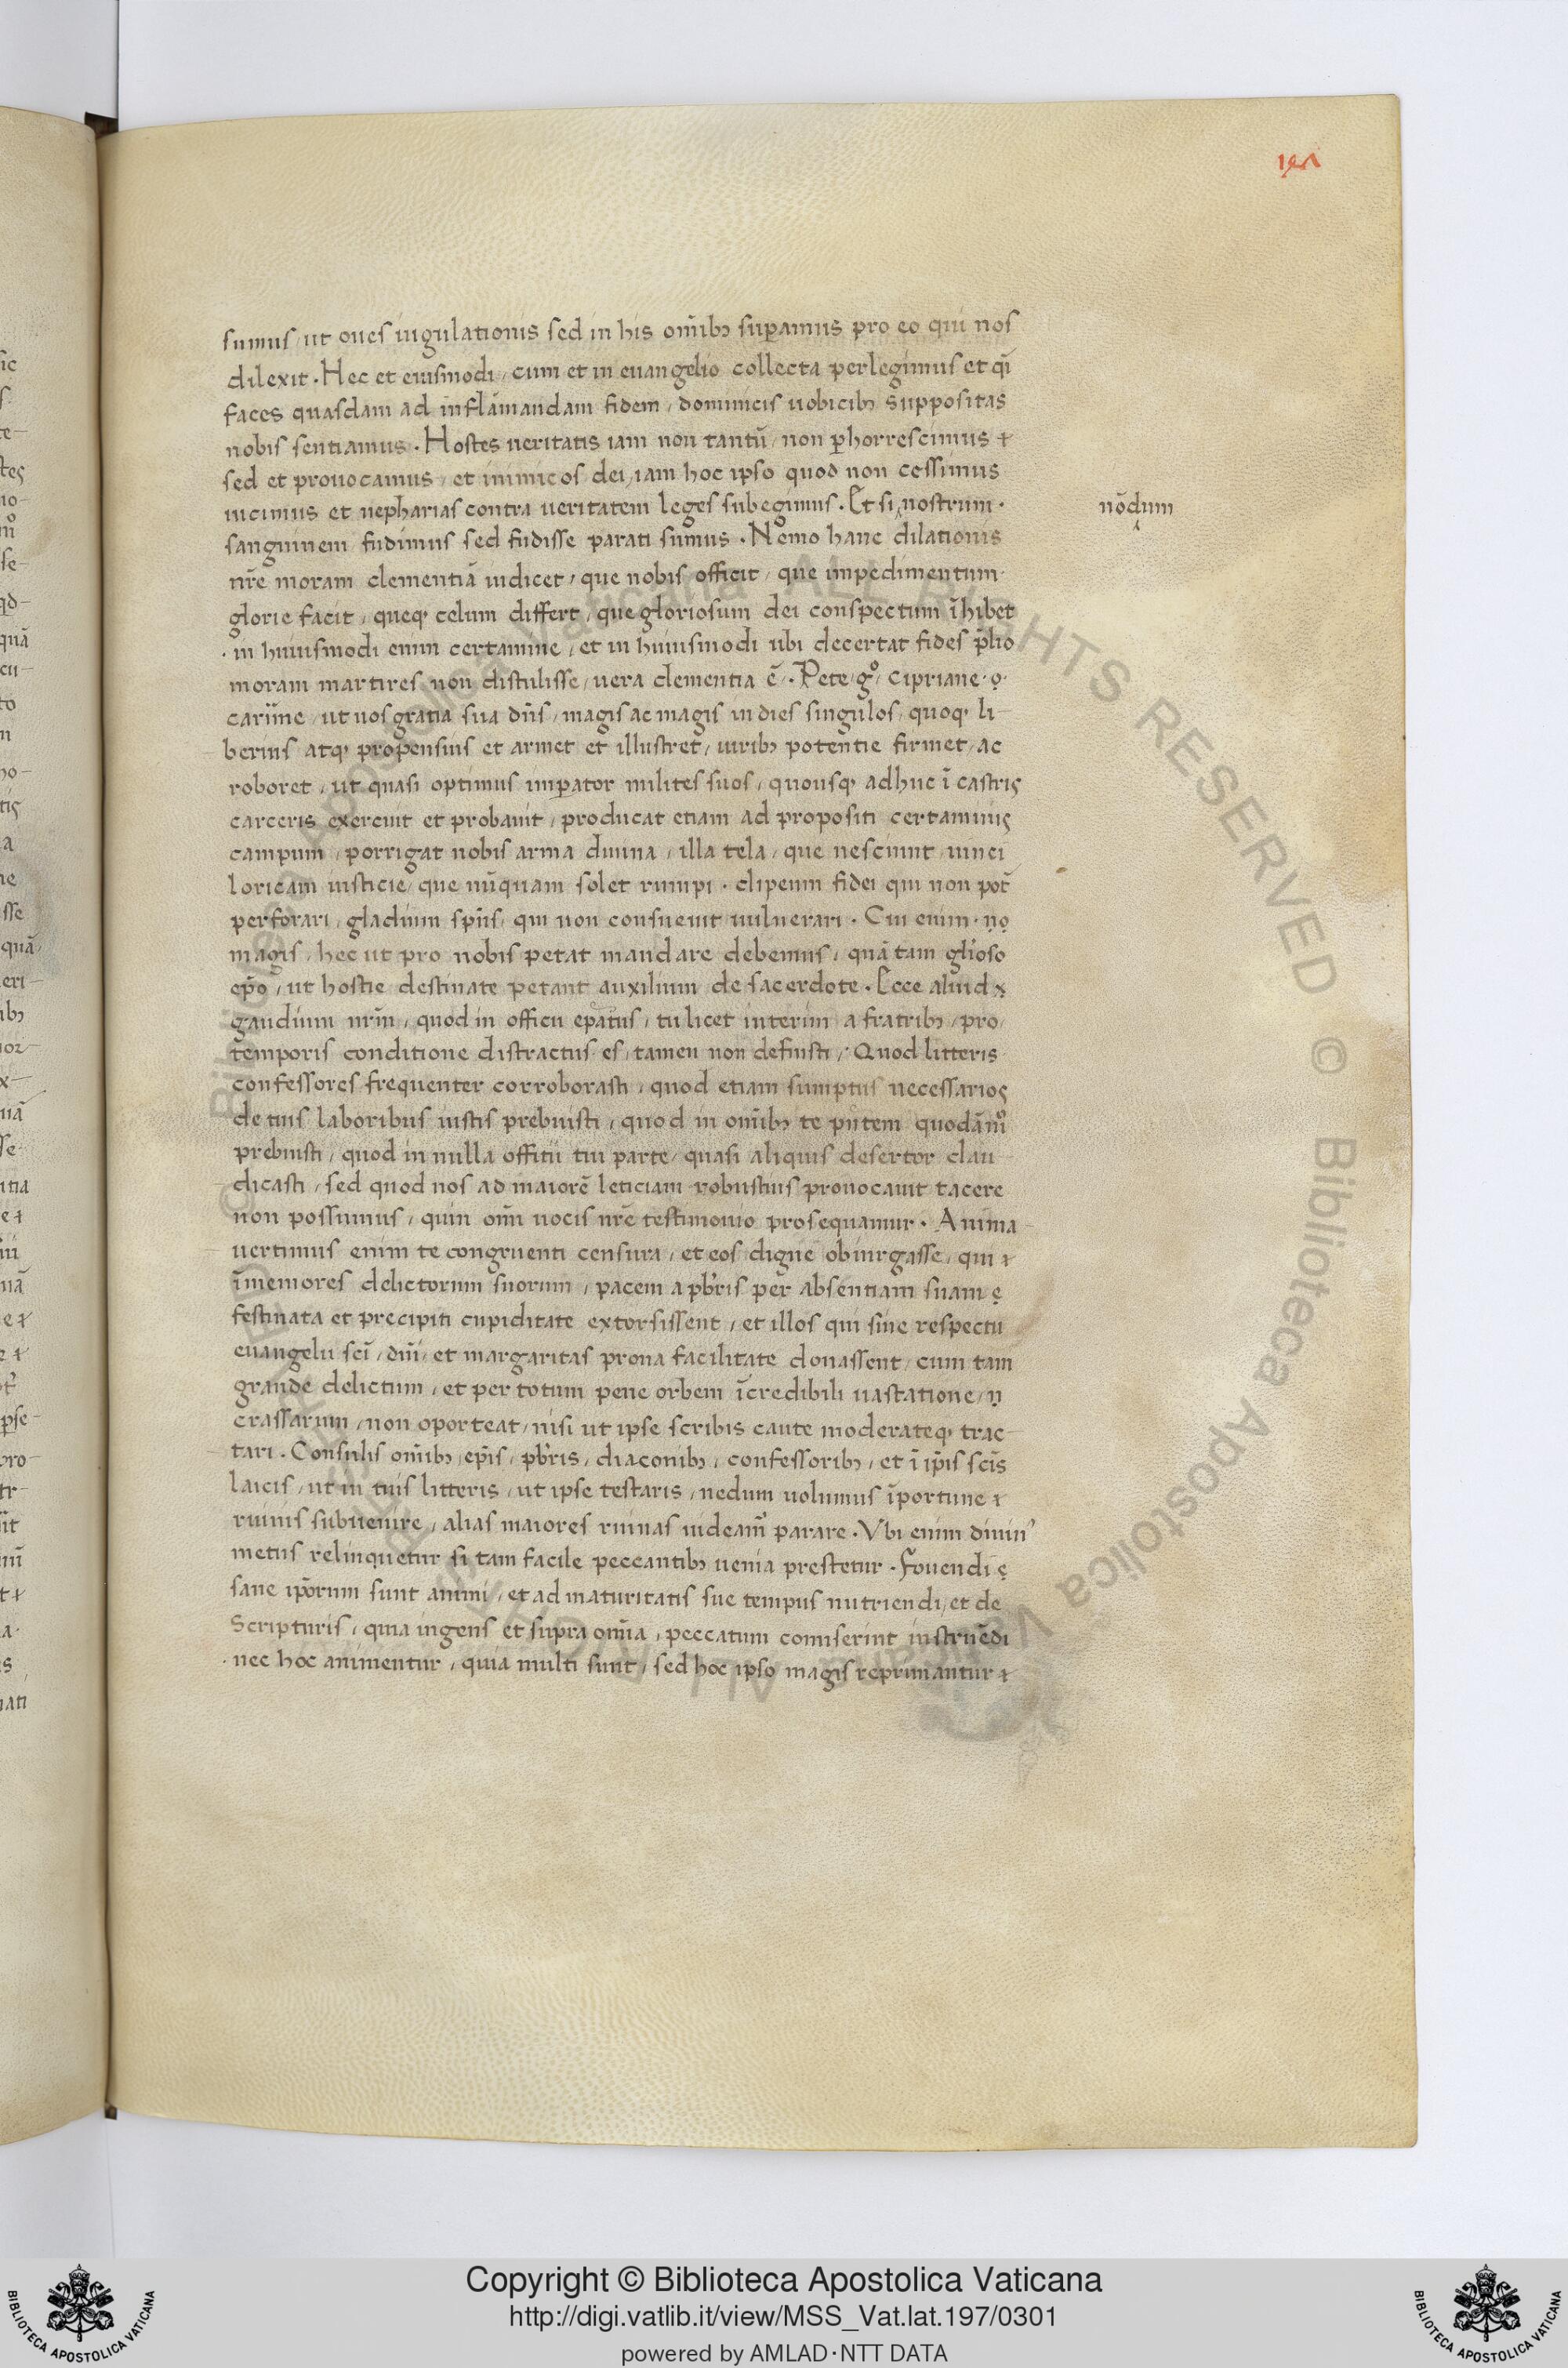 197
sumus / ut oues iugulationis sed in his om̄ibꝫ suꝑamus pro eo qui nos
dilexit . Hec et eiusmodi / cum et in euangelio collecta perlegimus et q̄i
faces quasdam ad inflāmandam fidem / dominicis uobicibꝫ suppositas
nobis sentiamus . Hostes ueritatis iam non tantū / non ꝑhorrescimus
sed et prouocamus / et inimicos dei / iam hoc ipso quod non cessimus
uicimus et nepharias contra ueritatem leges subegimus . Et si nostrum .
nōdum
sanguinem fudimus sed fudisse parati sumus . Nemo hanc dilationis
nr̄e moram clementiā iudicet / que nobis officit / que impedimentum
glorie facit / queqꝫ celum differt / que gloriosum dei conspectum īhibet
. in huiusmodi enim certamine / et in huiusmodi ubi decertat fides p̄lio
moram martires non distulisse / uera clementia ē . Pete / gº / cipriane .
cariīne / ut nos gratia sua dn̄s / magis ac magis in dies singulos / quoqꝫ li-
berius atqꝫ propensius et armet et illustret / uiribꝫ potentie firmet / ac
roboret / ut quasi optimus imꝑator milites suos / quousqꝫ adhuc ī castris
carceris exercuit et probauit / producat etiam ad propositi certaminis
campum / porrigat nobis arma diuina / illa tela / que nesciunt uinci
loricam iusticie / que nūquam solet rumpi . clipeum fidei qui non pot̄
perforari / gladium spūs / qui non consueuit uulnerari . Cui enim
magis / hec ut pro nobis petat mandare debemus / quā tam glīoso
ep̄o / ut hostie destinate petant auxilium de sacerdote . Ecce aliud
gaudium nr̄m / quod in officii ep̄atus / tu licet interim a fratribꝫ / pro
temporis conditione distractus es / tamen non defuisti / Quod litteris
confessores frequenter corroborasti / quod etiam sumptus necessarios
de tuis laboribus iustis prebuisti / quod in om̄ibꝫ te pn̄tem quodām̊
prebuisti / quod in nulla offitii tui parte / quasi aliquis desertor clau-
dicasti / sed quod nos ad maiorē leticiam robustius prouocauit tacere
non possumus / quin om̄i uocis nr̄e testimonio prosequamur . Anima-
uertimus enim te congruenti censura / et eos digne obiurgasse / qui
īmemores delictorum suorum / pacem a pb̄ris per absentiam suam
festinata et precipiti cupiditate extorsissent / et illos qui sine respectu
euangelii scī / dn̄i / et margaritas prona facilitate donassent / cum tam
grande delictum / et per totum pene orbem īcredibili uastatione /
crassarum / non oporteat / nisi ut ipse scribis caute moderateqꝫ trac-
tari . Consulis om̄ibꝫ ep̄is / pb̄ris / diaconibꝫ / confessoribꝫ / et ī ip̄is scīs
laicis / ut in tuis litteris / ut ipse testaris / nedum uolumus īportune
ruinis subuenire / alias maiores ruinas uideam᷒ parare . Vbi enim diuin᷒
metus relinquetur si tam facile peccantibꝫ uenia prestetur . Fouendi
sane ip̄orum sunt animi / et ad maturitatis sue tempus nutriendi / et de
Scripturis / quia ingens et supra om̄ia / peccatum comiserint instruēdi
. nec hoc animentur / quia multi sunt / sed hoc ipso magis reprimantur
Copyright © Biblioteca Apostolica Vaticana
http://digi.vatlib.it/view/MSS_Vat.lat.197/0301
powered by AMLAD·NTT DATA
BIBLIOTECA APOSTOLICA VATICANA
BIBLIOTECA APOSTOLICA VATICANA